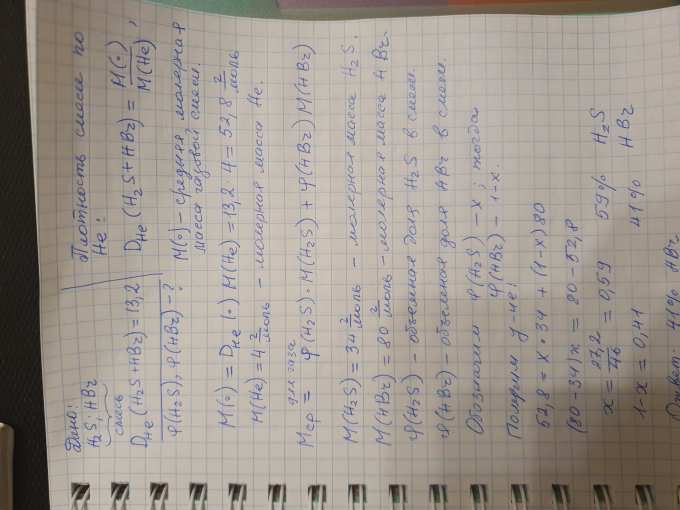 Дано:
H₂S; HBr
смесь
D_He (H₂S+HBr) = 13,2
φ(H₂S), φ(HBr) - ?
Плотность смеси по
He:
D_He (H₂S+HBr) = M(·)/M(He) ,
M(·) – средняя молярная
масса газовой смеси.
M(·) = D_He (·) M(He) = 13,2 · 4 = 52,8 г/моль
M(He) = 4 г/моль – молярная масса He.
для газа
M_ср = φ(H₂S)·M(H₂S) + φ(HBr) M(HBr)
M(H₂S) = 34 г/моль – молярная масса H₂S.
M(HBr) = 80 г/моль – молярная масса HBr.
φ(H₂S) – объемная доля H₂S в смеси.
φ(HBr) – объемная доля HBr в смеси.
Обозначим φ(H₂S) – x ; тогда
φ(HBr) – 1-x.
Получим у-ие:
52,8 = x·34 + (1-x) 80
(80-34)x = 80-52,8
x = 27,2/46 = 0,59 59% H₂S
1-x = 0,41 41% HBr
Ответ: 41% HBr